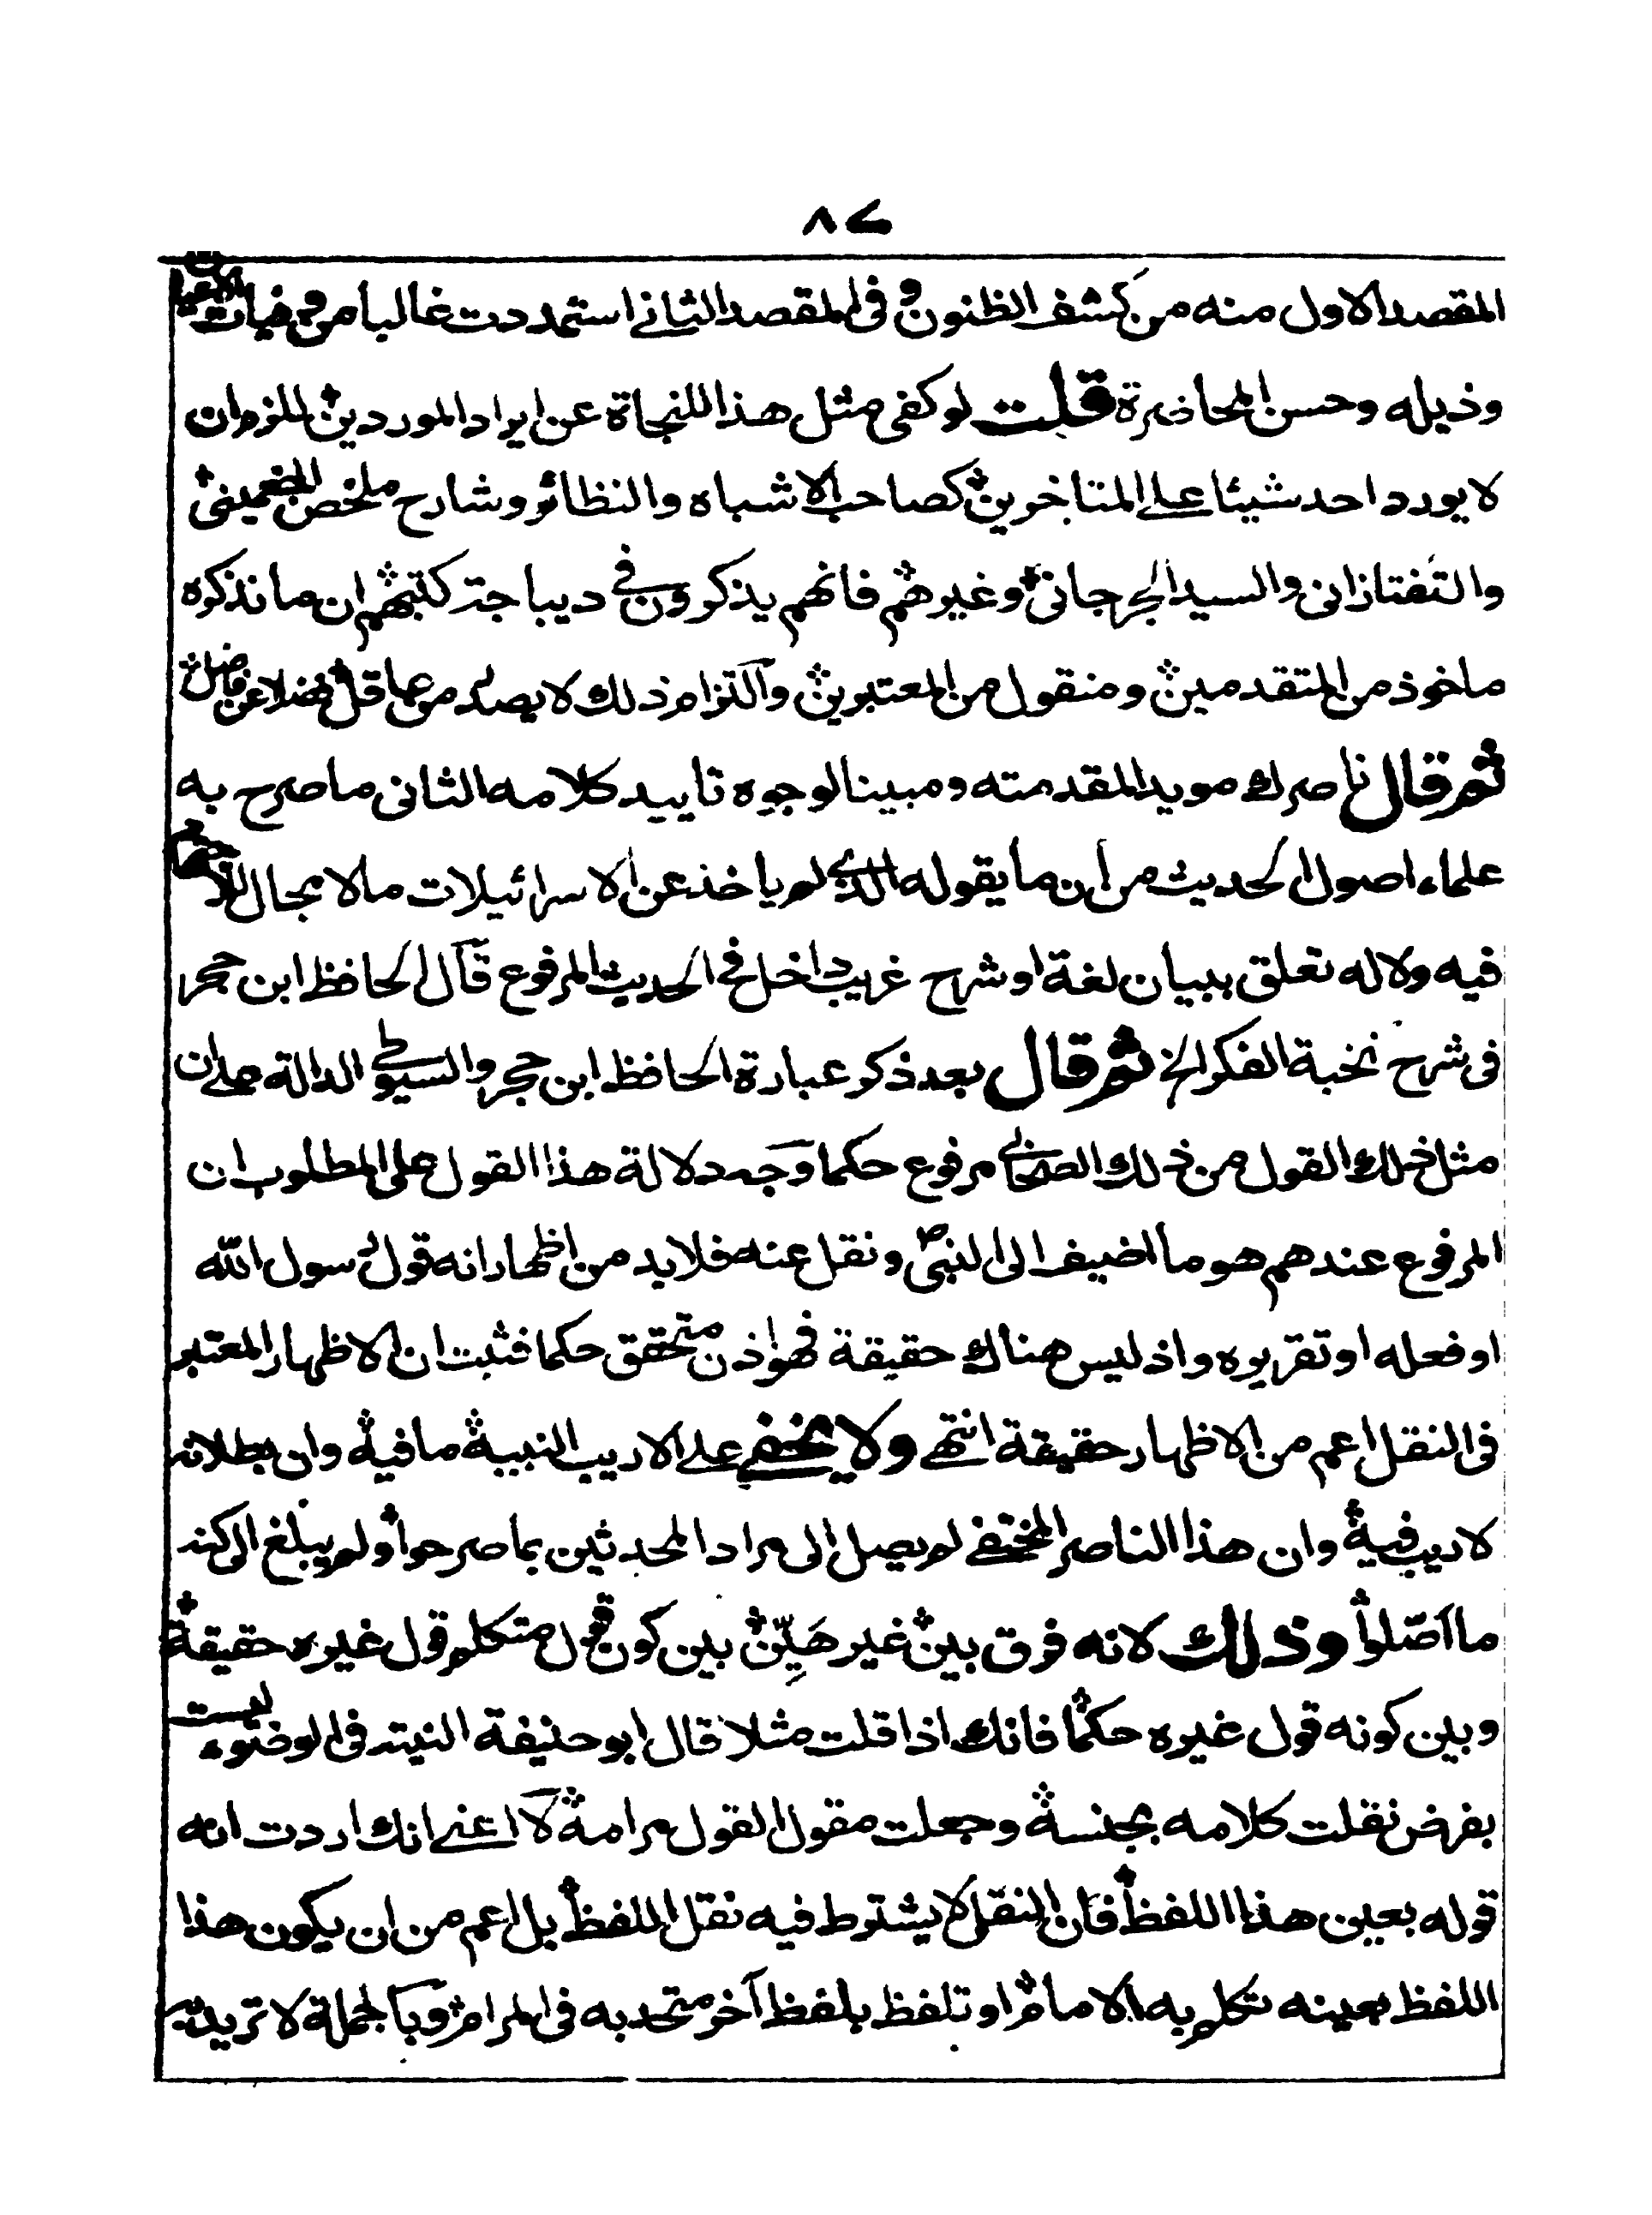 ٨٤
المقصد الاول منه من كشف الظنون وفى المقصد الثانى استمددت غالبا من وفيات الاعيان
وذيله وحسن المحاضرة قلت لو كفى مثل هذا للنجاة عن ايراد الموردين للزم ان
لا يورد احد شيئا على المتاخرين كصاحب الاشباه والنظائر وشارح ملخص الجغمينى
والتفتازانى والسيد الجرجانى وغيرهم فانهم يذكرون فى ديباجة كتبهم ان ما نذكره
ماخوذ من المتقدمين ومنقول من المعتبرين والتزام ذلك لا يصدر من عاقل فضلا عن فاضل
ثم قال ناصرك مويد المقدمته ومبينا لوجوه تاييد كلامه الثانى ما صرح به
علماء اصول الحديث من أن ما يقوله الذى لم ياخذ عن الاسرائيلات مالا مجال للاجتهاد
فيه ولا له تعلق ببيان لغة او شرح غريب داخل فى الحديث المرفوع قال الحافظ ابن حجر
فى شرح نخبة الفكر الخ ثم قال بعد ذكر عبارة الحافظ ابن حجر والسيوطى الدالة على ان
مثل ذلك القول من ذلك الصحابى مرفوع حكما وجه دلالة هذا القول على المطلوب ان
المرفوع عندهم هو ما اضيف الى النبى ص ونقل عنه فلابد من اظهار انه قول رسول الله
او فعله او تقريره واذ ليس هناك حقيقة فهو اذن متحقق حكما فثبت ان الاظهار المعتبر
فى النقل اعم من الاظهار حقيقة انتهى ولا يخفى على الاديب النبيه ما فيه وان بطلانه
لا ريب فيه وان هذا الناصر المختفى لم يصل الى مراد المحدثين بما صرحوا ولم يبلغ الى كنه
ما اصّلوا وذلك لانه فرق بين غير هَيِّن بين كون قول متكلم قول غيره حقيقة
وبين كونه قول غيره حكما فانك اذا قلت مثلا قال ابو حنيفة النية فى الوضوء ليست
بفرض نقلت كلامه بجنسه وجعلت مقول القول مرامه لا اعنى انك اردت انه
قوله بعين هذا اللفظ فان النقل لا يشترط فيه نقل اللفظ بل اعم من ان يكون هذا
اللفظ بعينه تكلم به الامام او تلفظ بلفظ آخر متحد به فى المرام وبالجملة لا تريد به